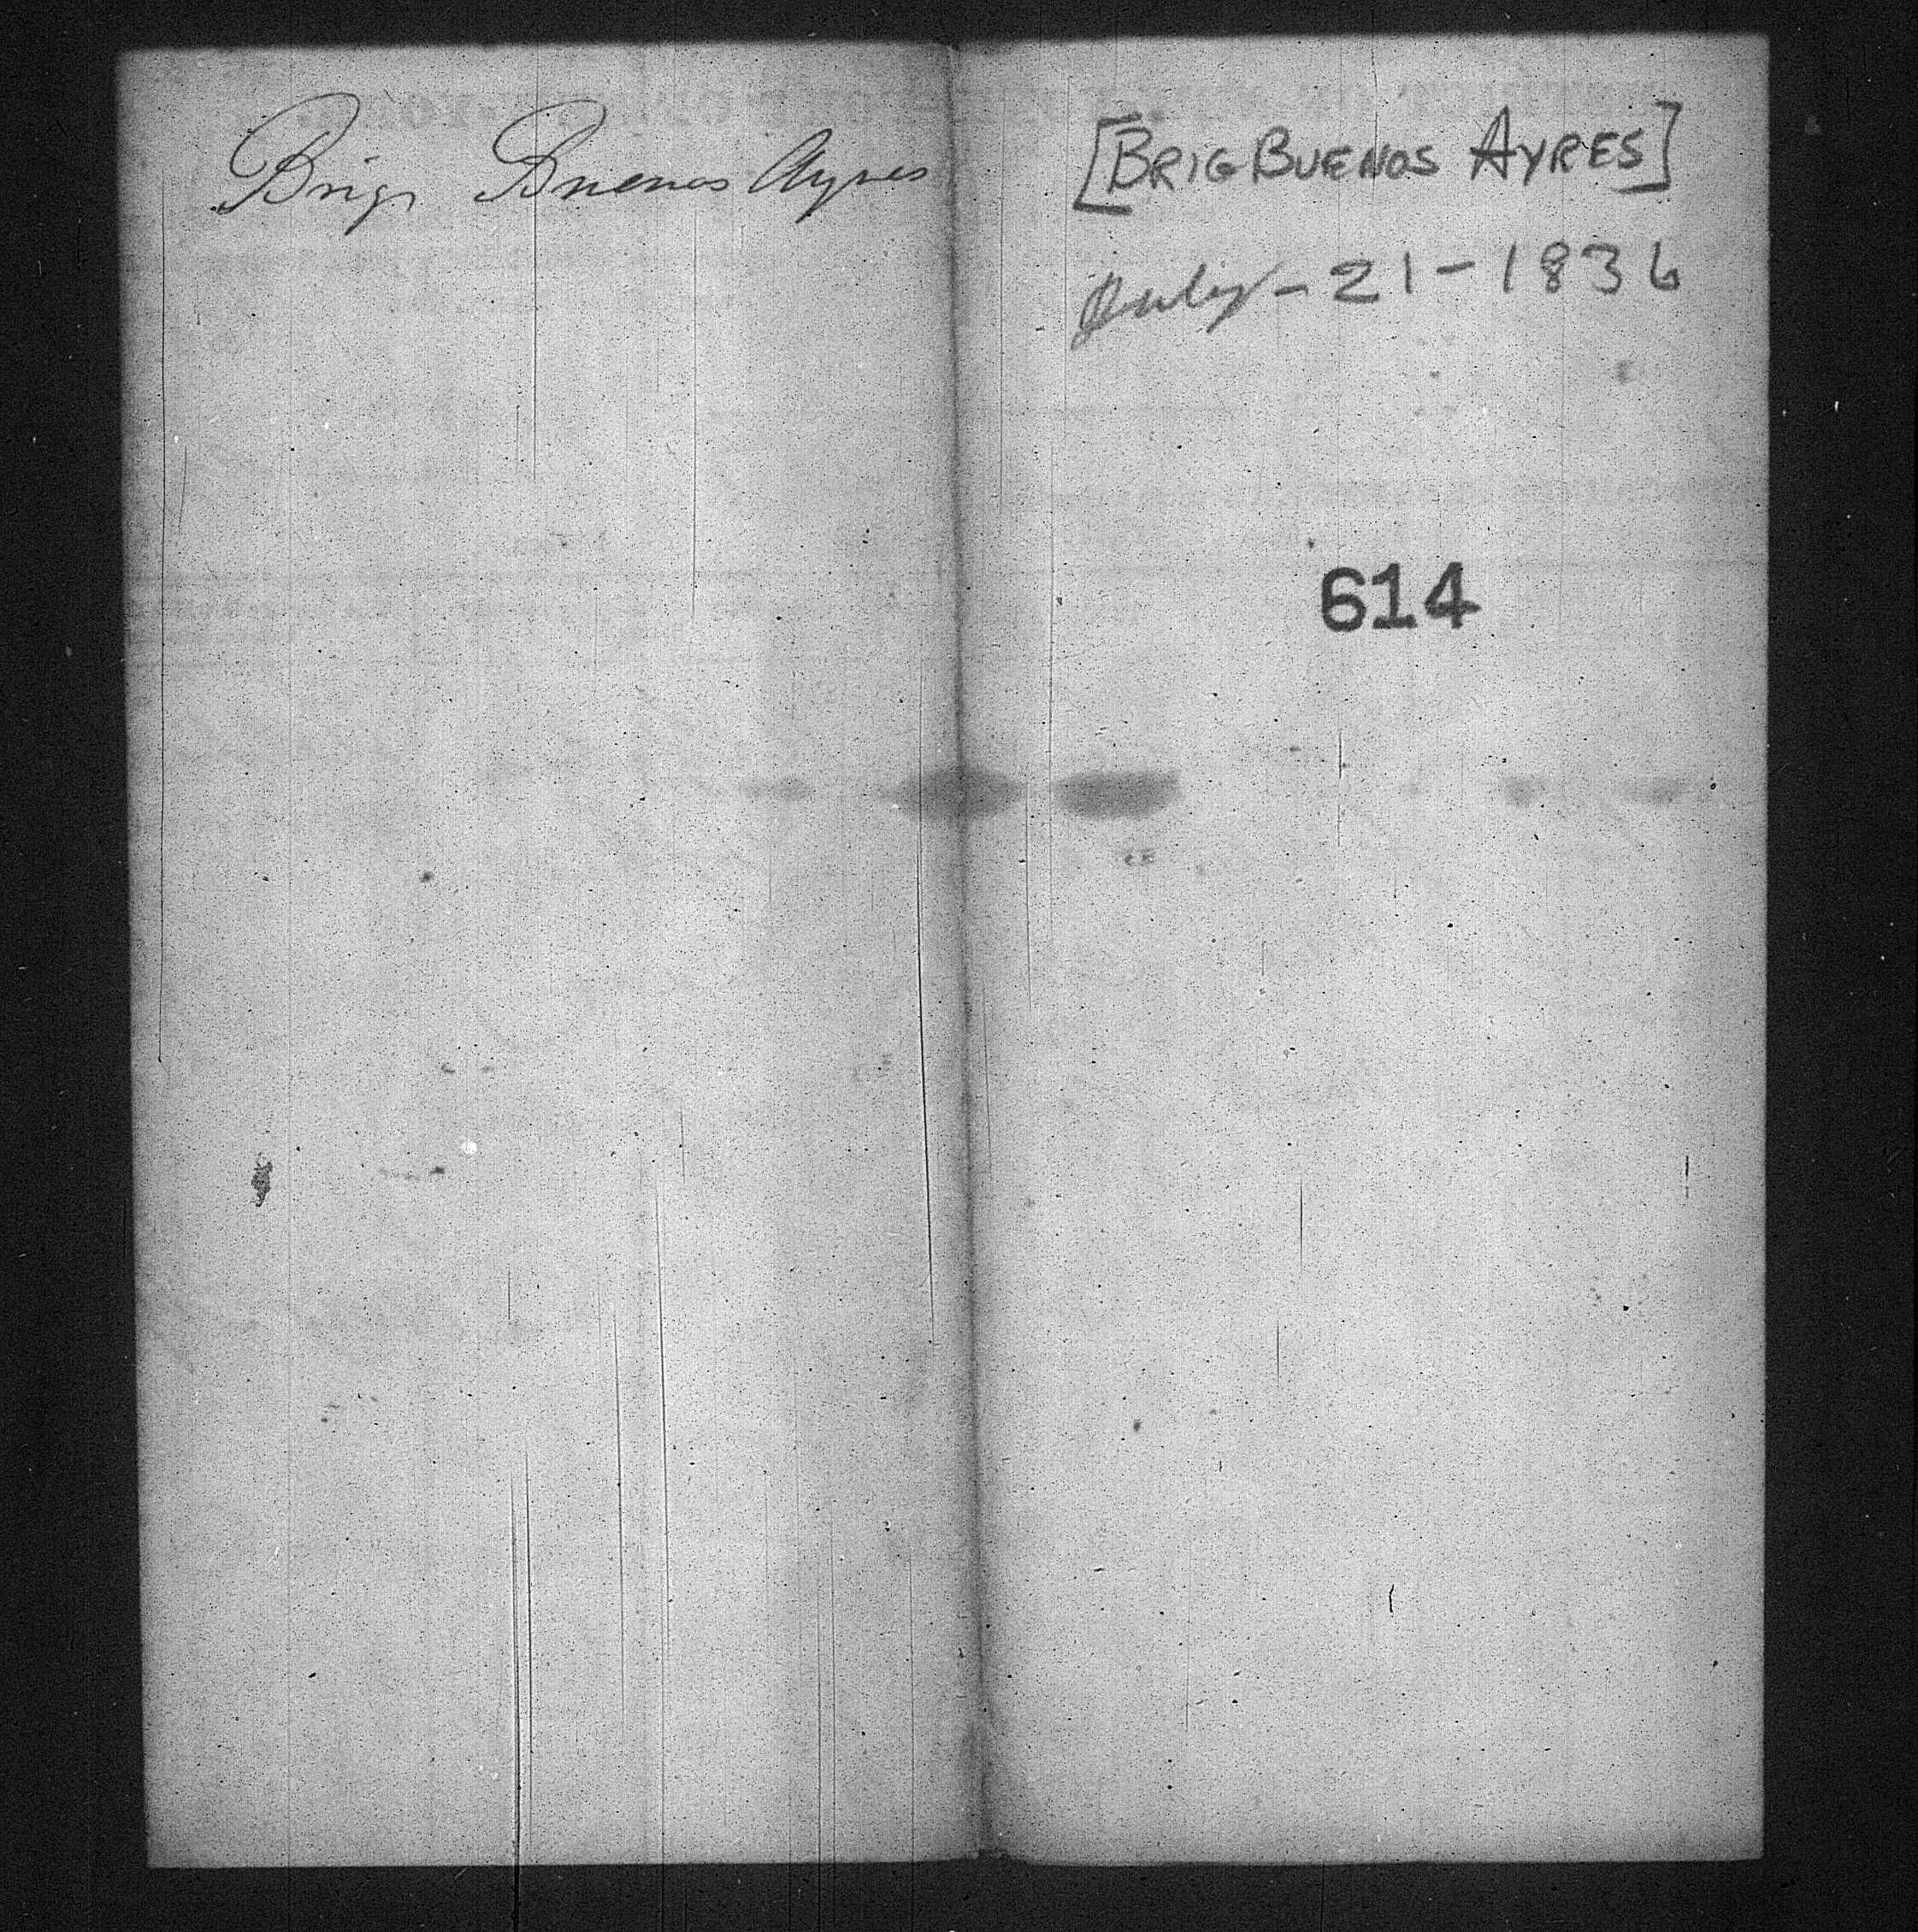 Brig Buenos Ayres
[BRIG BUENOS AYRES]
July-21-1836
614